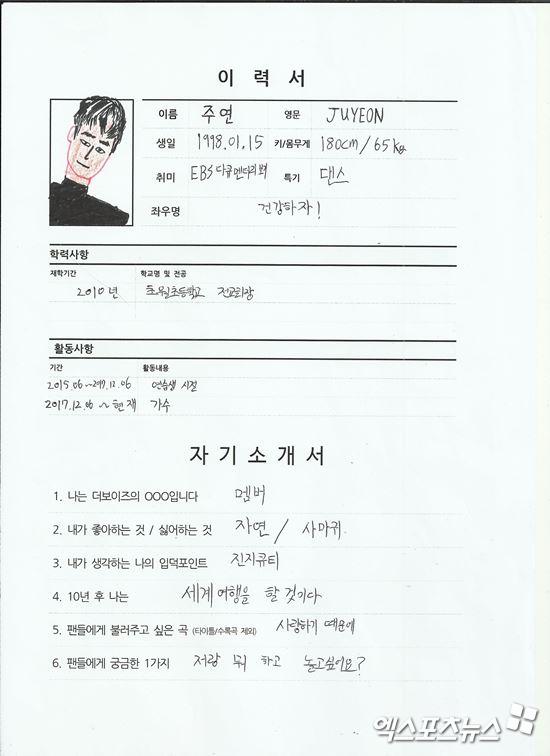 이 력 서
이름 주연 영문 JUYEON
생일 1998.01.15 키/몸무게 180cm/65kg
취미 EBS다큐멘터리 보기 특기 댄스
좌우명 건강하자!
학력사항
재학기간 학교명 및 전공
2010년 초등학교 전교회장
활동사항
기간 활동내용
2015.06~2017.12.06 연습생 시절
2017.12.06 ~ 현재 가수
자 기 소 개 서
1. 나는 더보이즈의 OOO입니다 멤버
2. 내가 좋아하는 것 / 싫어하는 것 자연 / 사마귀
3. 내가 생각하는 나의 입덕포인트 진지큐티
4. 10년 후 나는 세계여행을 할 것이다
5. 팬들에게 불러주고 싶은 곡 (타이틀/수록곡 제외) 사랑하기 때문에
6. 팬들에게 궁금한 1가지 저랑 뭐 하고 놀고싶어요?
엑스포츠뉴스